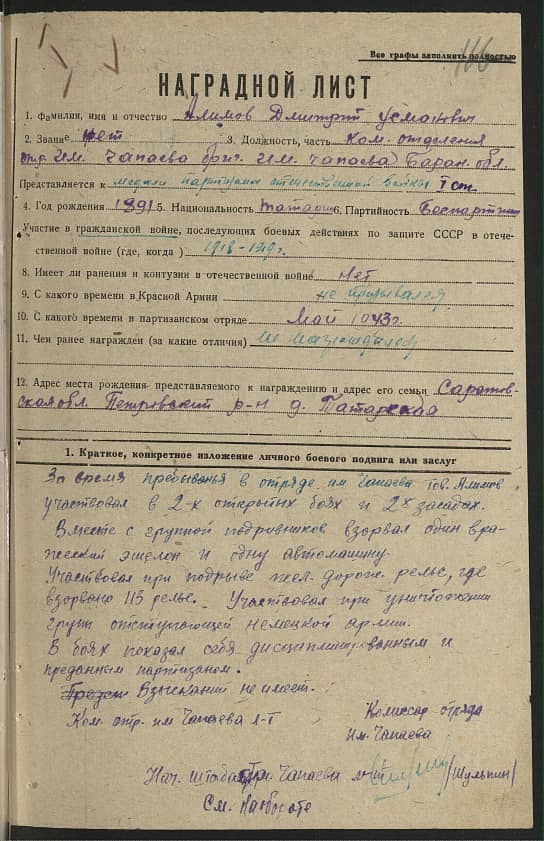 166
Все графы заполнить полностью
НАГРАДНОЙ ЛИСТ
1. Фамилия, имя и отчество Алимов Дмитрий Усманович
2. Звание нет 3. Должность, часть Ком. отделения
отр. им. Чапаева бриг. им. Чапаева Баран. обл.
Представляется к медали партизана отечественной войны I ст.
4. Год рождения 1891 5. Национальность татарин 6. Партийность Беспартийн
Участие в гражданской войне, последующих боевых действиях по защите СССР в отече-
ственной войне (где, когда) 1918-1919г.
8. Имеет ли ранения и контузии в отечественной войне Нет
9. С какого времени в Красной Армии не призывался
10. С какого времени в партизанском отряде Май 1943г.
11. Чем ранее награжден (за какие отличия) не награждался
12. Адрес места рождения представляемого к награждению и адрес его семьи Саратов-
ская обл. Петровский р-н д. Татарская
1. Краткое, конкретное изложение личного боевого подвига или заслуг
За время пребыванья в отряде им Чапаева тов. Алимов
участвовал в 2-х открытых боях и 2х засадах.
Вместе с группой подрывников взорвал один вра-
жеский эшелон и одну автомашину.
Участвовал при подрыве жел. дорож. рельс, где
взорвано 113 рельс. Участвовал при уничтожении
групп отступающей немецкой армии.
В боях показал себя дисциплинированным и
преданным партизаном.
Взысканий не имеет.
Ком. отр. им Чапаева л-т
Комиссар отряда
Им. Чапаева
Нач. штаба Чапаева /Шульпин/
См. на обороте